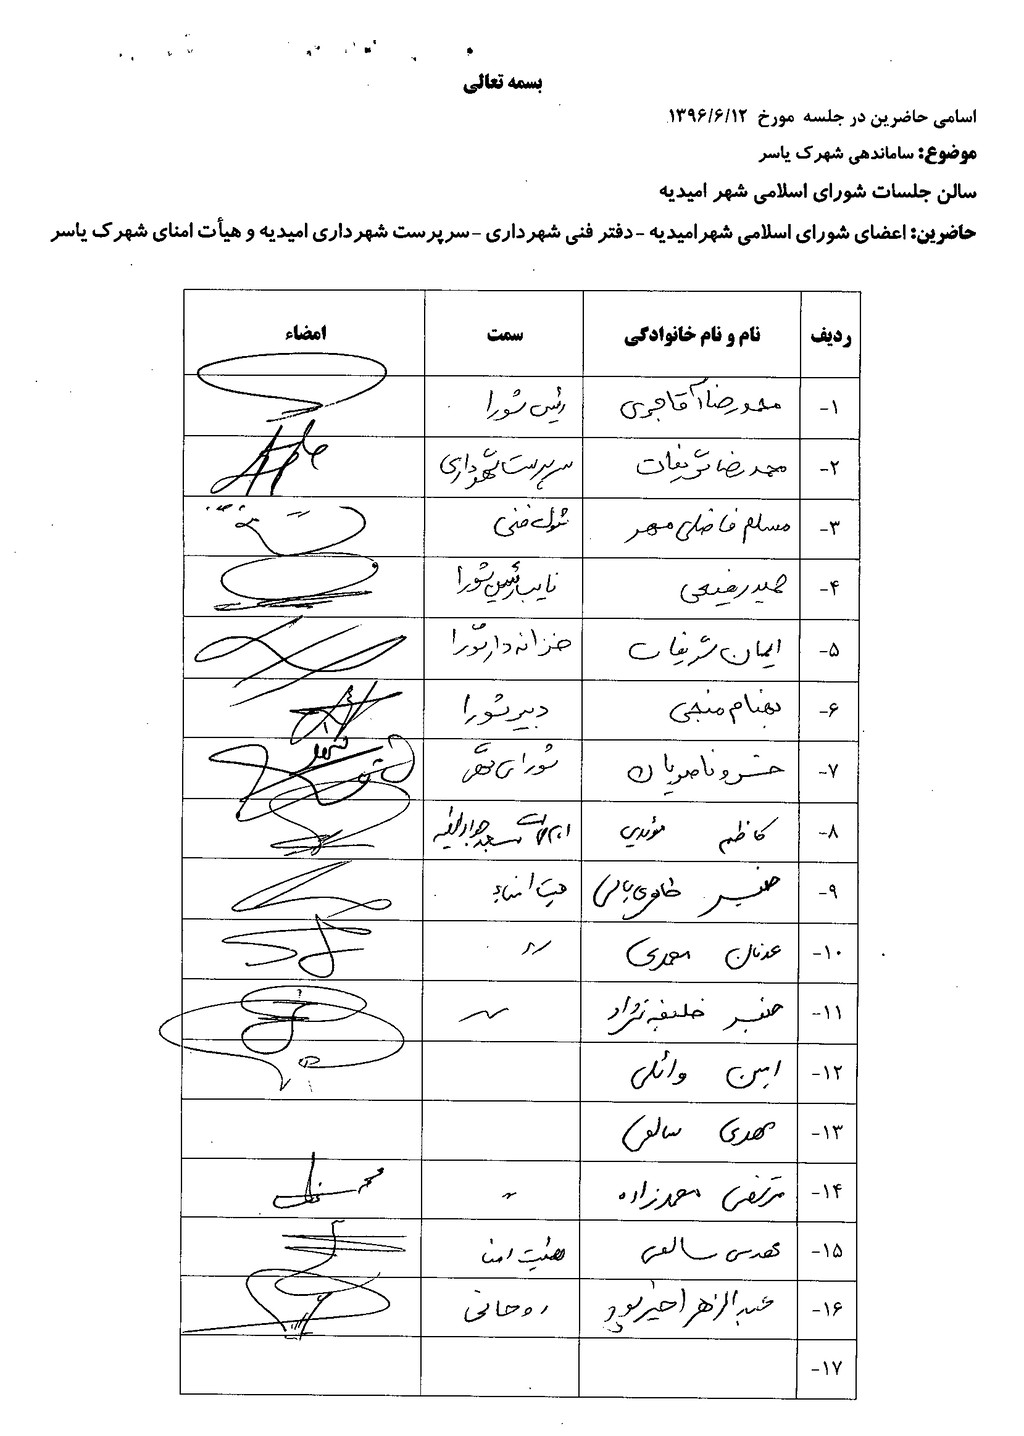 بسمه تعالی
اسامی حاضرین در جلسه مورخ ۱۳۹۶/۶/۱۲
موضوع: ساماندهی شهرک یاسر
سالن جلسات شورای اسلامی شهر امیدیه
حاضرین: اعضای شورای اسلامی شهر امیدیه - دفتر فنی شهرداری - سرپرست شهرداری امیدیه و هیأت امنای شهرک یاسر
ردیف نام و نام خانوادگی سمت امضاء
۱- محمدرضا آقاجری رئیس شورا
۲- محمدرضا شریفات سرپرست شهرداری
۳- مسلم فاضلی مهر مسئول فنی
۴- حمید رفیعی نایب رئیس شورا
۵- ایمان شریفات خزانه دار شورا
۶- بهنام منجی دبیر شورا
۷- خسرو ناصریان شورای شهر
۸- کاظم مؤیدی
۹- هیت امناء
۱۰- عدنان محمدی //
۱۱- خلیفه نژاد //
۱۲- امین وائلی
۱۳- مهدی سالمی
۱۴- مرتضی محمدزاده //
۱۵- مهدی سالمی هیئت امنا
۱۶- عبدالزهرا روحانی
۱۷-